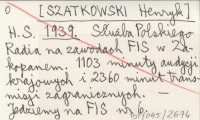 o [SZATKOWSKI Henryk]
H.S. 1939. Służba Polskiego
Radia na zawodach FIS w Za-
kopanem. 1103 minuty audycji
krajowych i 2360 minut trans-
misji zagranicznych. —
Jedziemy na FIS nr 6.